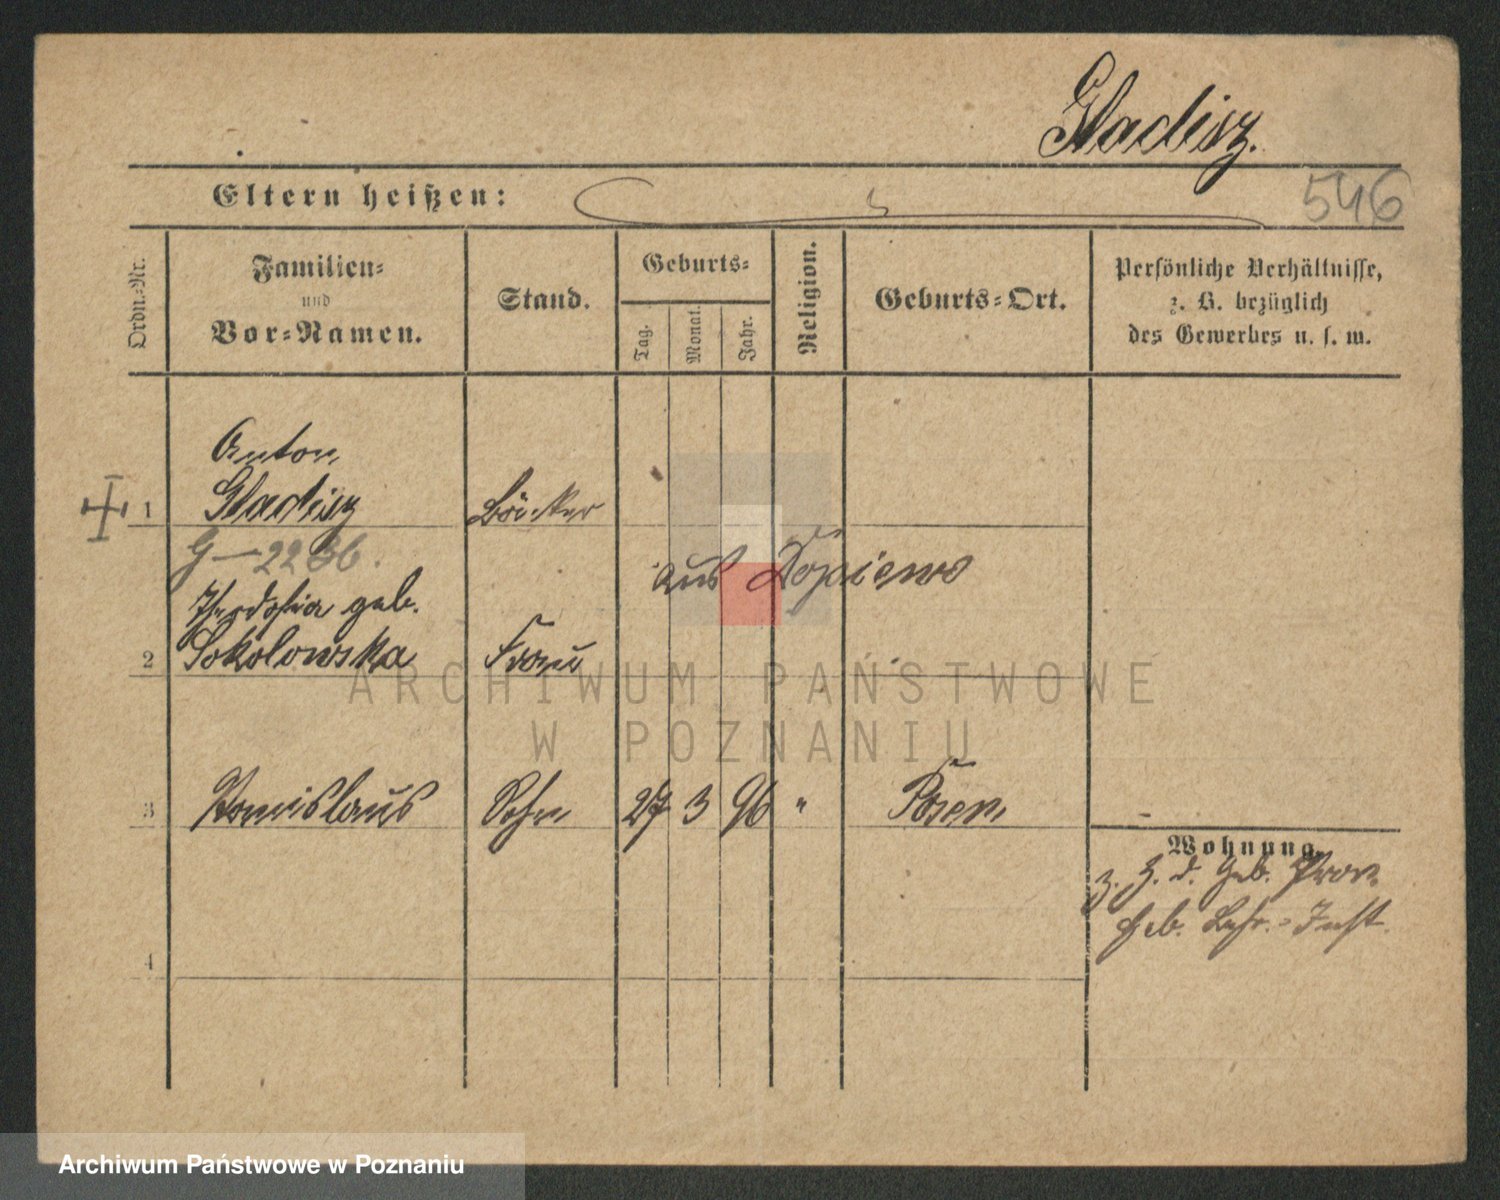 Gladisz.
Eltern heißen:
546
Ordn.-Nr.
Familien-
und
Vor-Namen.
Stand.
Geburts-
Tag.
Monat.
Jahr.
Religion.
Geburts-Ort.
Persönliche Verhältnisse,
z. B. bezüglich
des Gewerbes u. s. w.
Anton
1 Gladisz Bäcker
G-2236.
aus Dopiewo
Theodosia geb.
2 Sokolowska Frau
ARCHIWUM PAŃSTWOWE
W POZNANIU
3 Stanislaus Sohn 27 3 96 " Posen
Wohnung
z. Z. d. Geb. Prov.
Heb. Lehr.-Inst.
4
Archiwum Państwowe w Poznaniu